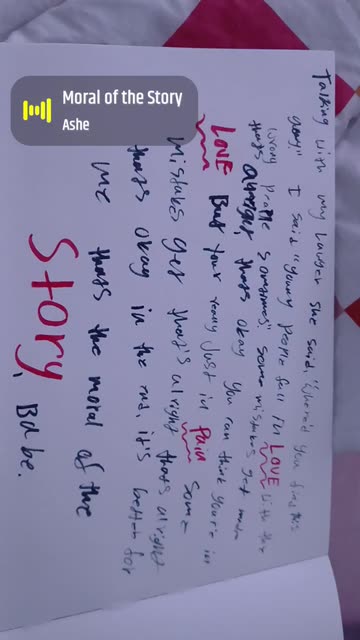 Moral of the Story
Ashe
Talking with my lawyer she said "where'd you find this
guy?" I said "young people fall in LOVE with the
wrong people sometimes" some mistakes get made
thats alright, thats okay you can think you're in
LOVE But your really Just in Pain some
mistakes get that's alright thats alright
thats okay in the end, it's better for
me thats the moral of the
Story, Babe.